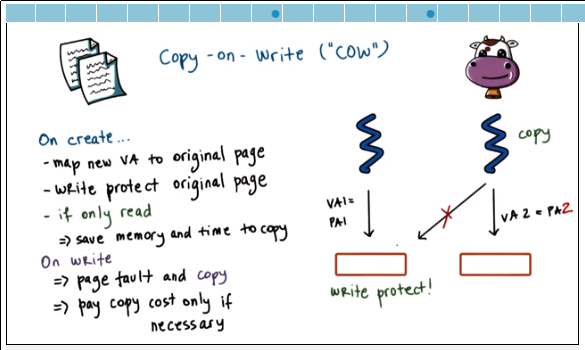 Copy-on-Write ("COW")
On create...
- map new VA to original page
- write protect original page
- if only read
=> save memory and time to copy
On write
=> page fault and copy
=> pay copy cost only if
necessary
copy
VA1=
PA1
VA2 = PA2
write protect!